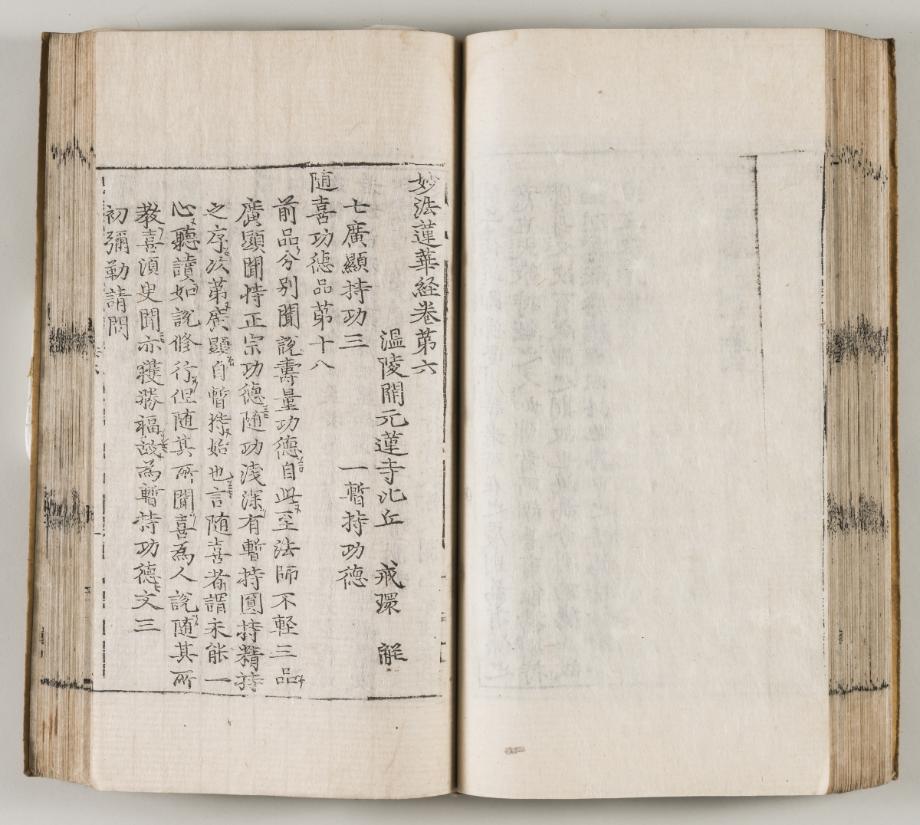 妙法蓮華経卷第六
溫陵開元蓮寺比丘 戒環 觧
七廣顯持功三 一暫持功德
隨喜功德品第十八
前品分別聞說壽量功德自此至法師不輕三品
廣顯聞持正宗功德隨功淺深有暫持圓持精持
之序次第廣顯自暫持始也言隨喜者謂未能一
心聽讀如說修行但随其所聞喜為人說随其所
教喜湏臾聞亦獲勝福故為暫持功德文三
初彌勒請問